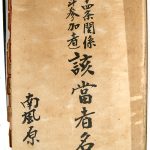 四条関係
斗参加者
該當者名
南風原